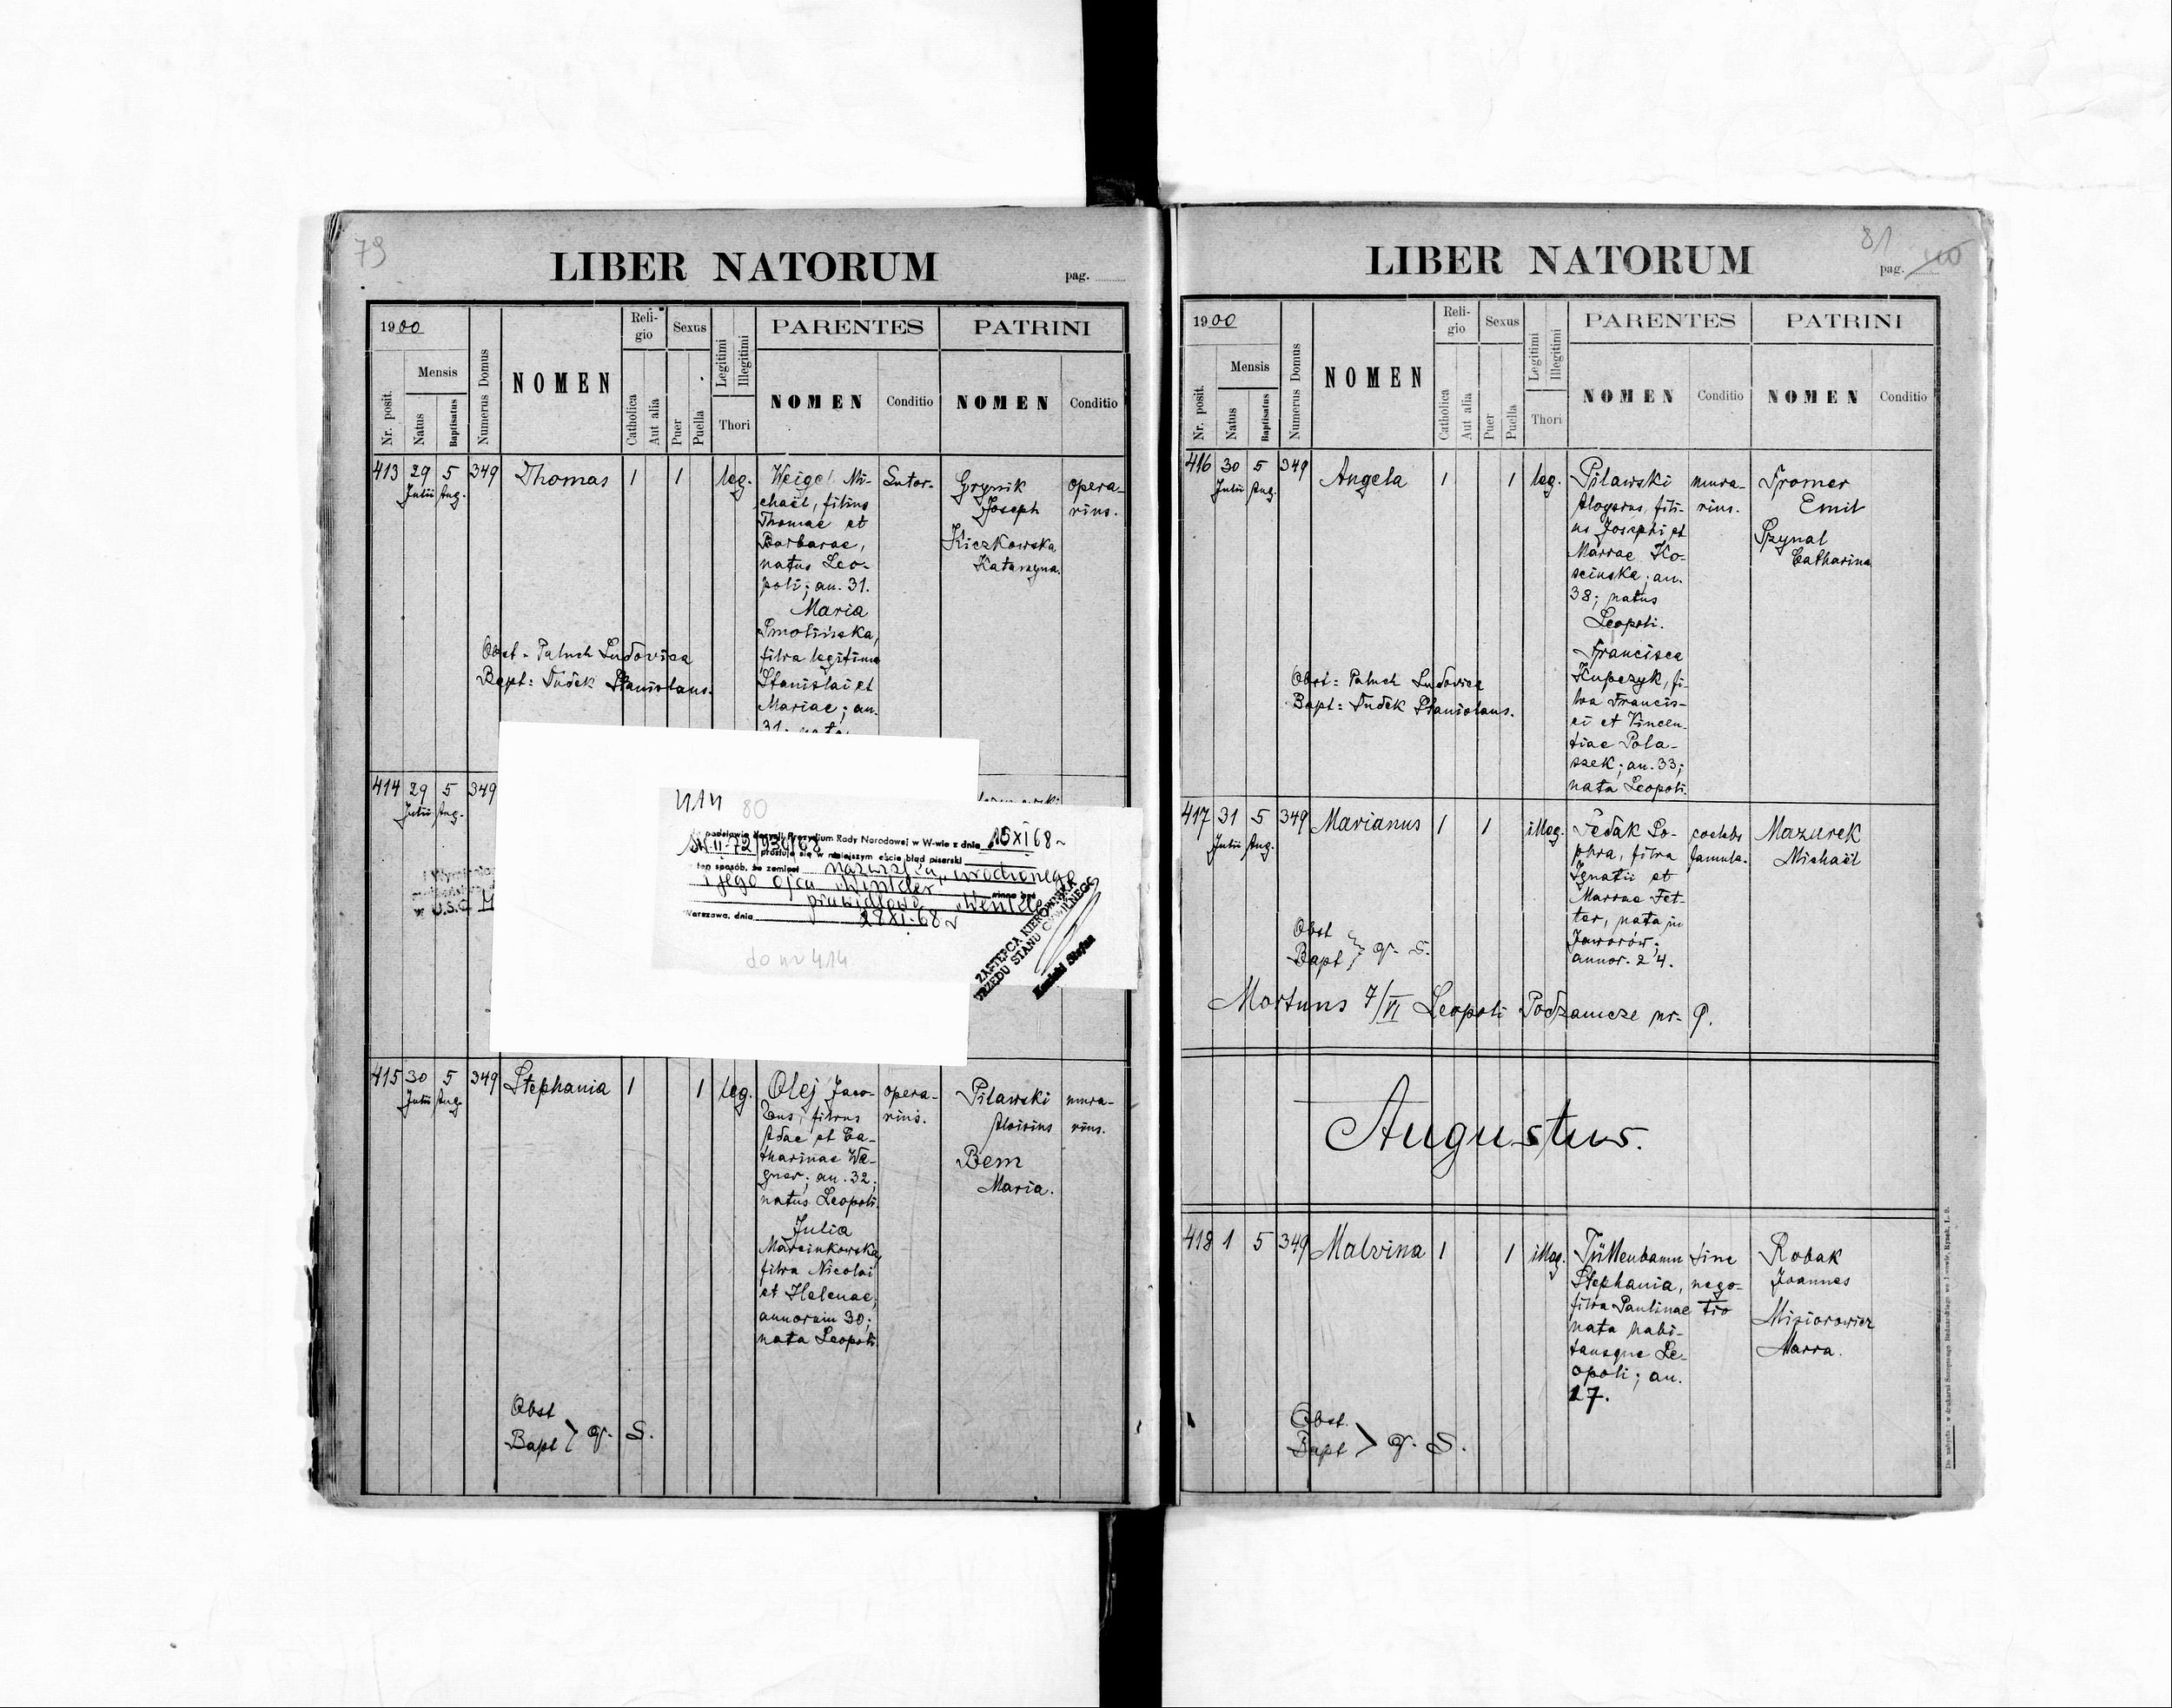 79
LIBER NATORUM
pag.
1900
Mensis
Nr. posit.
Natus
Baptisatus
Numerus Domus
NOMEN
Reli-
gio
Catholica
Aut alia
Sexus
Puer
Puella
Legitimi
Illegitimi
Thori
PARENTES
NOMEN
Conditio
PATRINI
NOMEN
Conditio
413 29 Julii 5 Aug. 349 Thomas 1 1 leg.
Weigel Mi-
chaël, filius
Thomae et
Barbarae,
natus Leo-
poli; an. 31.
Maria
Smolińska,
filia legitima
Stanislai et
Mariae; an.
31; nata
Sutor.
Grynik
Joseph
Kiczkowska
Katarzyna.
opera-
rius.
Obst. Paluch Ludovica
Bapt: Dudek Stanislaus.
414 29 Julii 5 Aug. 349
w U.S.C.
414 80
podstawie decyzji Prezydium Rady Narodowej w W-wie z dnia 15 XI 68
prostuje się w niniejszym akcie błąd pisarski
ten sposób, że zamiast nazwiska urodzonego
i jego ojca "Winkler" winno być
prawidłowo "Wenkle
Warszawa, dnia 28 XI. 68
ZASTĘPCA KIEROWNIKA
URZĘDU STANU CYWILNEGO
do nr 414
415 30 Julii 5 Aug. 349 Stephania 1 1 leg.
Olej Jaco-
bus, filius
Adae et Ca-
tharinae Wa-
gner; an. 32;
natus Leopoli.
Julia
Marcinkowska,
filia Nicolai
et Helenae;
annorum 30;
nata Leopoli.
opera-
rius.
Pilawski
Aloisius
Bem
Maria.
mura-
rius.
Obst
Bapt } q. s.
81
LIBER NATORUM
pag.
1900
Mensis
Nr. posit.
Natus
Baptisatus
Numerus Domus
NOMEN
Reli-
gio
Catholica
Aut alia
Sexus
Puer
Puella
Legitimi
Illegitimi
Thori
PARENTES
NOMEN
Conditio
PATRINI
NOMEN
Conditio
416 30 Julii 5 Aug. 349 Angela 1 1 leg.
Pilawski
Aloysius, fili-
us Josephi et
Mariae Ko-
scinska; an.
38; natus
Leopoli.
Francisca
Kupczyk, fi-
lia Francis-
ci et Vincen-
tiae Pola-
szek; an. 33;
nata Leopoli.
mura-
rius.
Fromer
Emil
Szynal
Catharina
Obst: Paluch Ludovica
Bapt: Dudek Stanislaus.
417 31 Julii 5 Aug. 349 Marianus 1 1 illeg.
Fedak So-
phia, filia
Ignatii et
Mariae Fet-
ter, nata in
Jaworów;
annor. 24.
coelebs
famula.
Mazurek
Michaël
Obst
Bapt } q. s.
Mortuus 7/VI Leopoli Podzamcze nr. 9.
Augustus.
418 1 5 349 Malvina 1 1 illeg.
Tüttenbaum
Stephania,
filia Paulinae
nata habi-
tansque Le-
opoli; an.
17.
sine
nego-
tio
Robak
Joannes
Misiorowicz
Maria.
Obst.
Bapt > q. s.